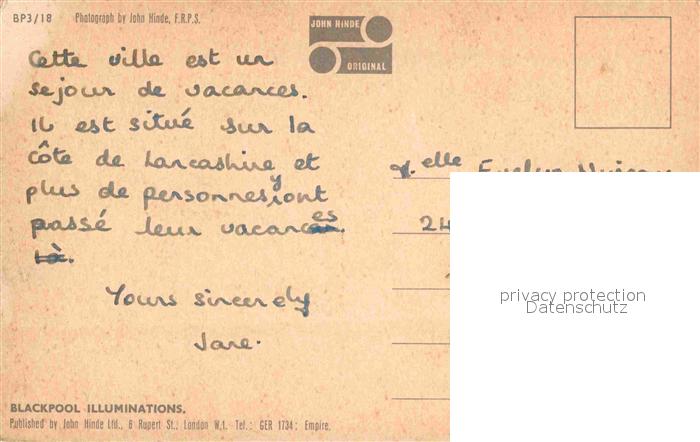 BP3/18 Photograph by John Hinde, F.R.P.S.
JOHN HINDE
ORIGINAL
Cette ville est un
sejour de vacances.
Il est situé sur la
côte de Lancashire et
plus de personnes y ont
passé leur vacances.
là.
Yours sincerely
Jane.
M.elle Evelyn
24
privacy protection
Datenschutz
BLACKPOOL ILLUMINATIONS.
Published by John Hinde Ltd., 6 Rupert St., London W.1. Tel.: GER 1734; Empire.